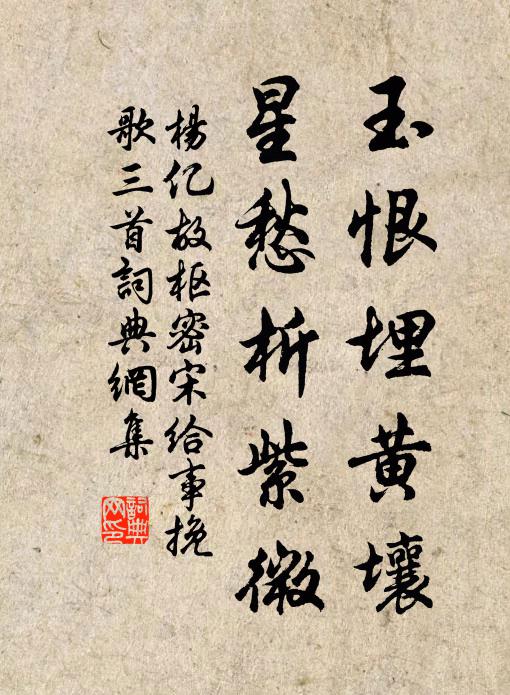 玉恨埋黄壤
星愁析紫微
楊亿故枢密宋给事挽
歌三首詞典網集
詞典
网印